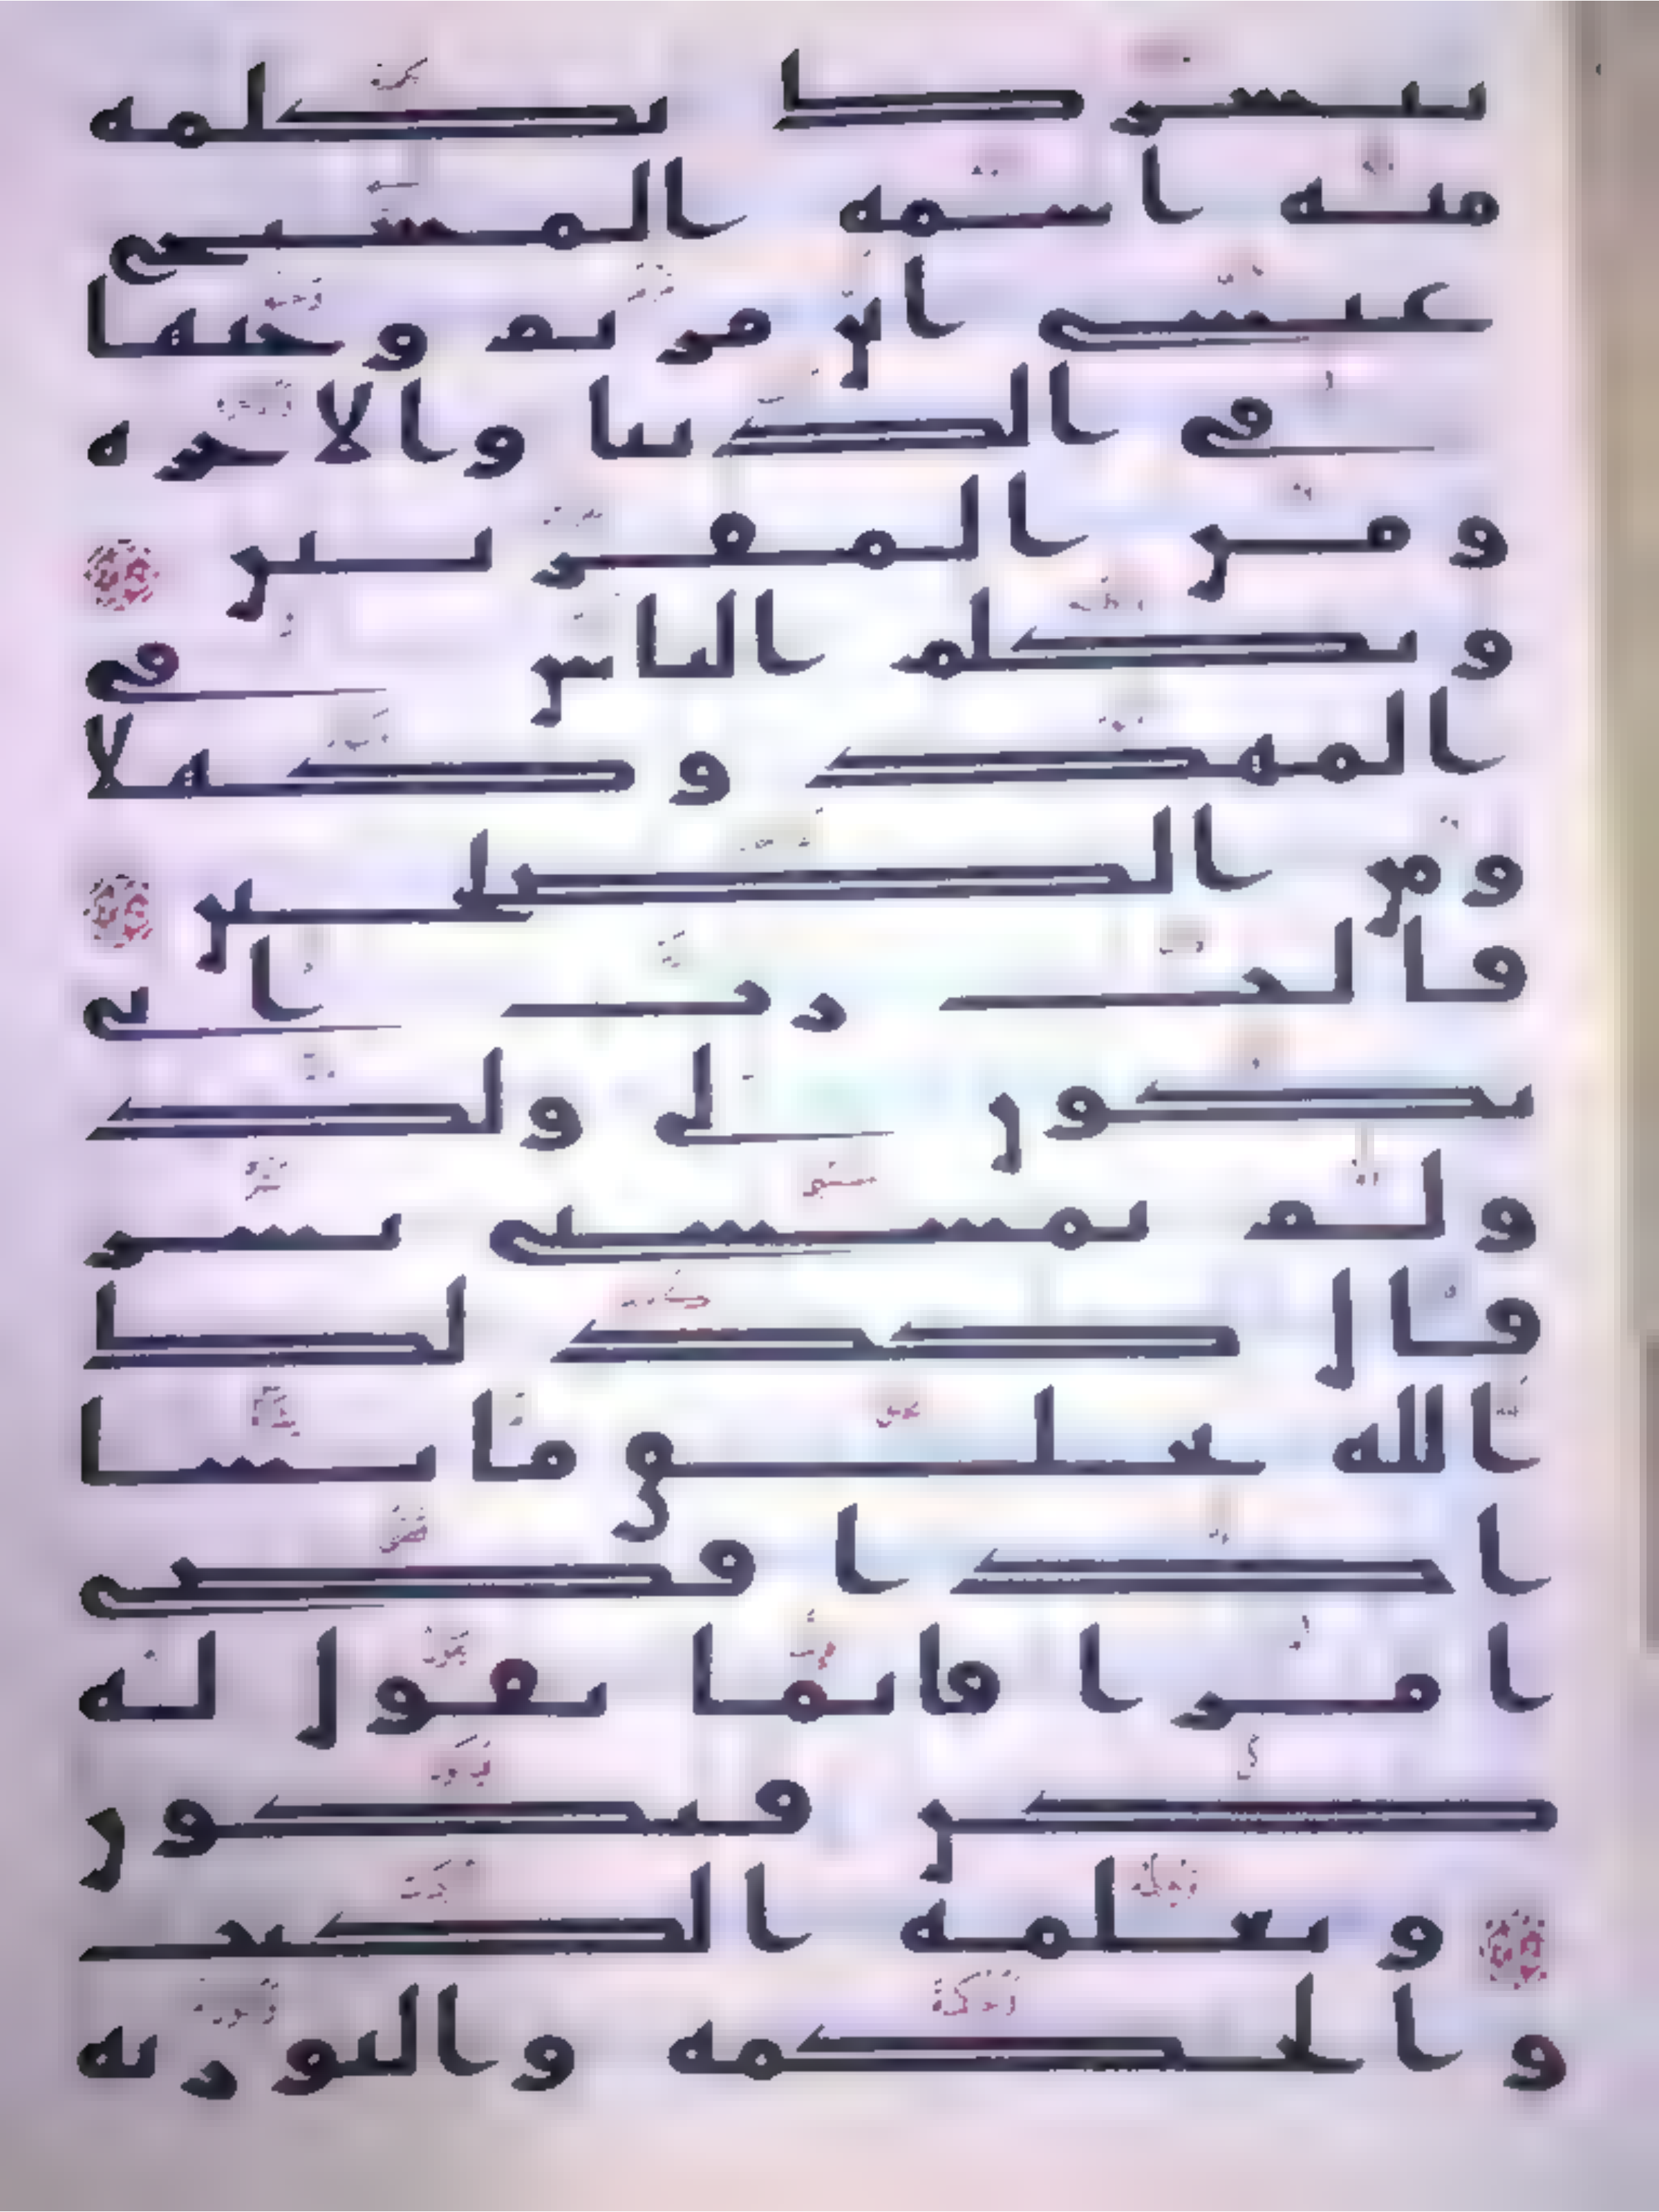 يبشرك بكلمه
منه اسمه المسيح
عيسى ابن مريم وجيها
في الدنيا والاخره
ومن المقربين
ويكلم الناس في
المهد وكهلا
ومن الصلحين
قالت رب انى
يكون لي ولد
ولم يمسسني بشر
قال كذلك
الله يخلق ما يشا
اذا قضى
امرا فانما يقول له
كن فيكون
ويعلمه الكتب
والحكمه والتوريه